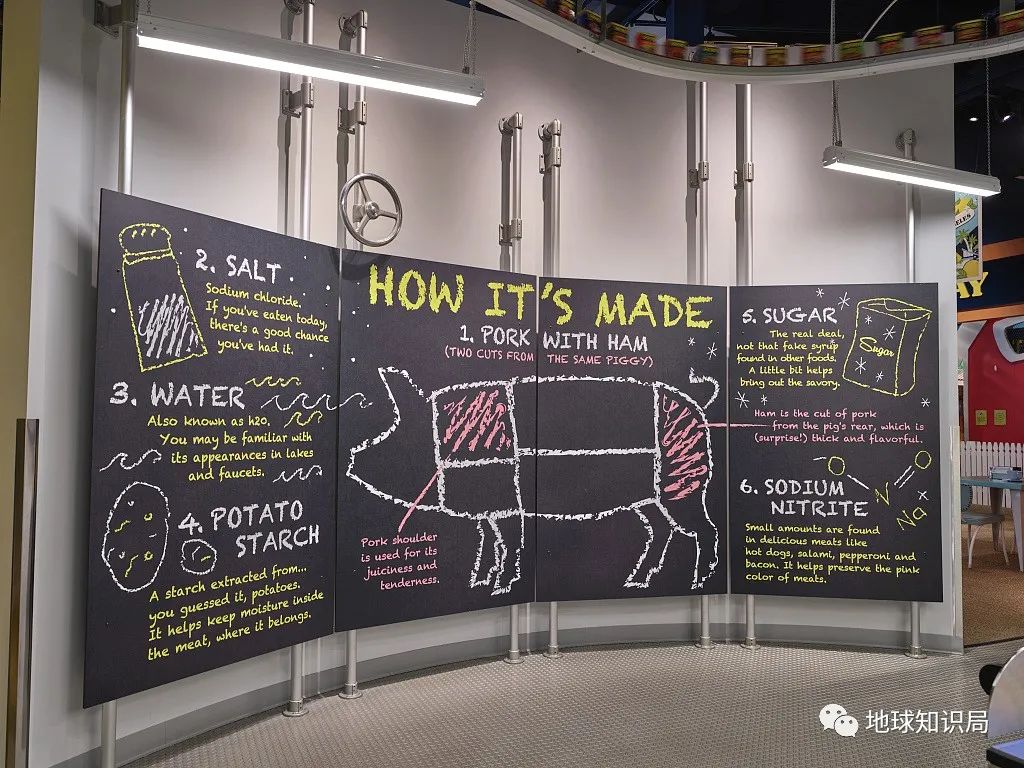 HOW IT'S MADE
1. PORK WITH HAM
(TWO CUTS FROM THE SAME PIGGY)
Pork shoulder
is used for its
juiciness and
tenderness.
2. SALT
Sodium chloride.
If you've eaten today,
there's a good chance
you've had it.
3. WATER
Also known as h2o.
You may be familiar with
its appearances in lakes
and faucets.
4. POTATO
STARCH
A starch extracted from...
you guessed it, potatoes.
It helps keep moisture inside
the meat, where it belongs.
5. SUGAR
The real deal,
not that fake syrup
found in other foods.
A little bit helps
bring out the savory.
Sugar
Ham is the cut of pork
from the pig's rear, which is
(surprise!) thick and flavorful.
6. SODIUM
NITRITE
N
Na
Small amounts are found
in delicious meats like
hot dogs, salami, pepperoni and
bacon. It helps preserve the pink
color of meats.
地球知识局